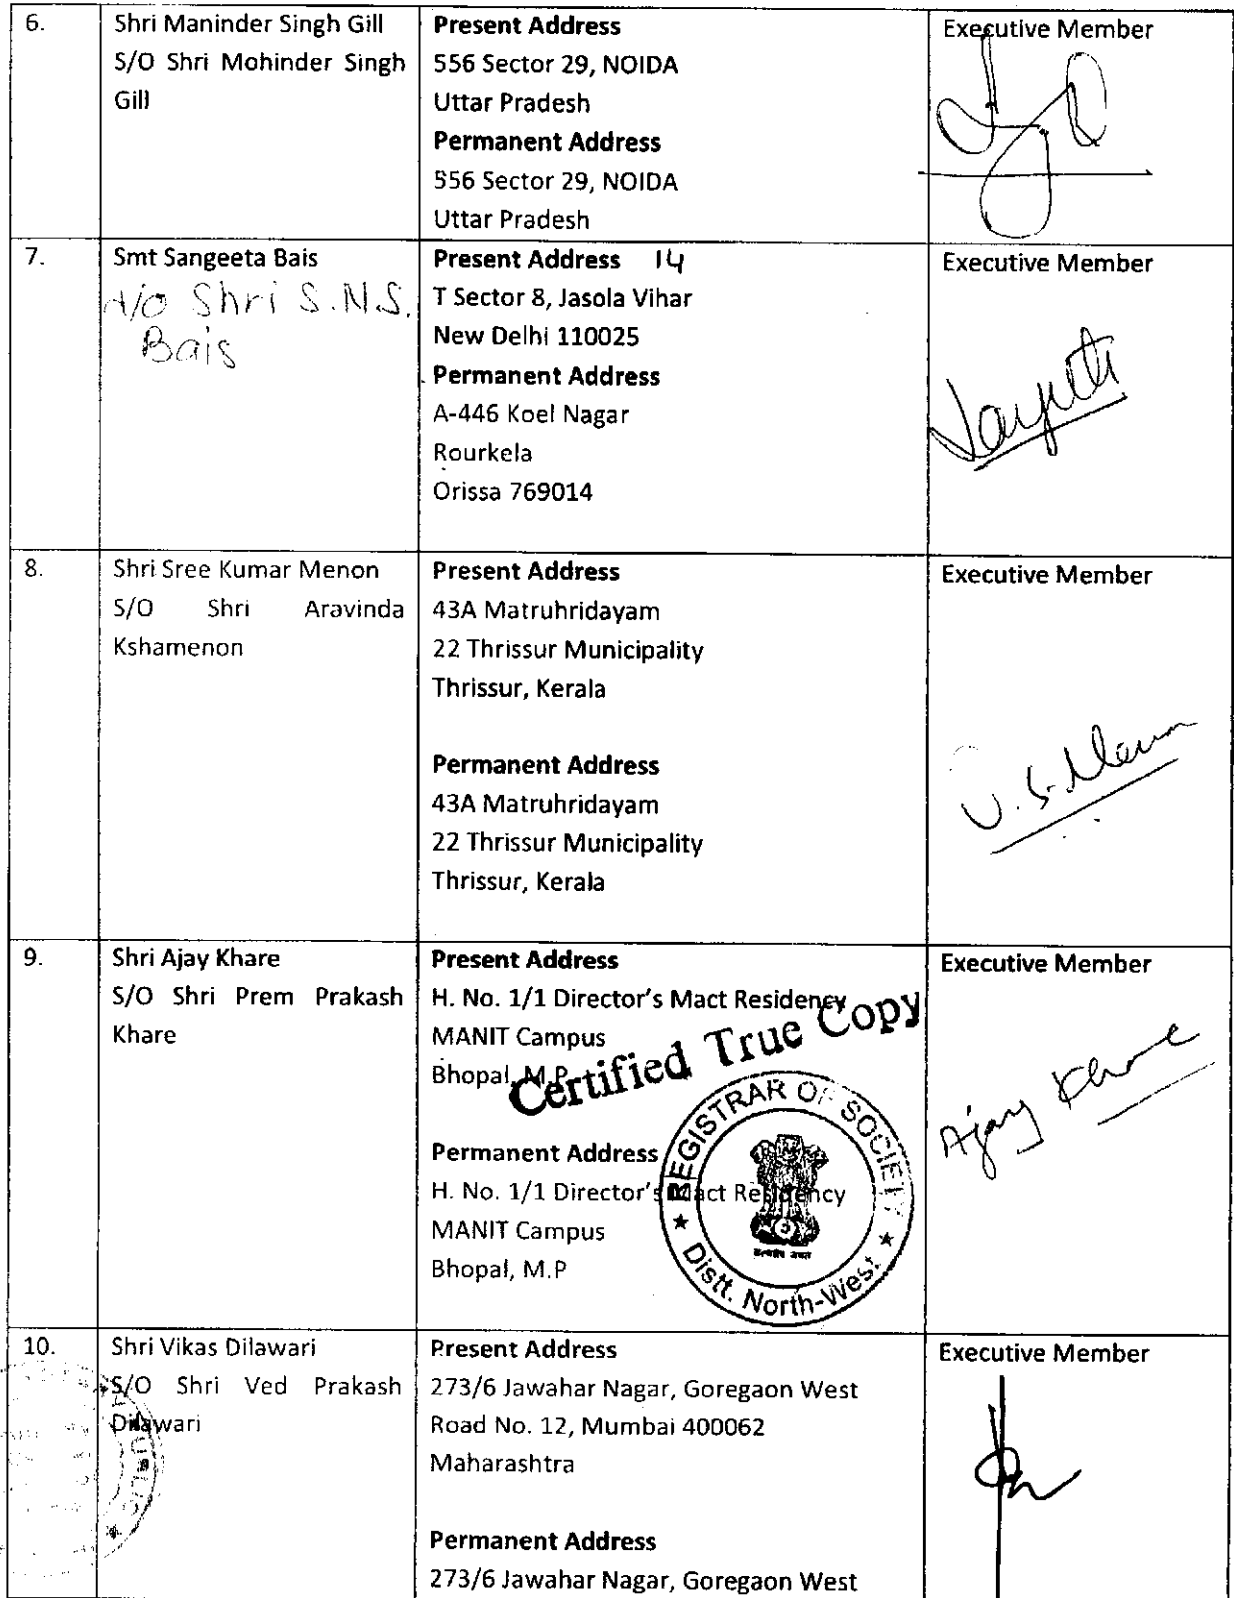 6.
Shri Maninder Singh Gill
S/O Shri Mohinder Singh
Gill
Present Address
556 Sector 29, NOIDA
Uttar Pradesh
Permanent Address
556 Sector 29, NOIDA
Uttar Pradesh
Executive Member
7.
Smt Sangeeta Bais
Shri S.N.S.
Bais
Present Address 14
T Sector 8, Jasola Vihar
New Delhi 110025
Permanent Address
A-446 Koel Nagar
Rourkela
Orissa 769014
Executive Member
8.
Shri Sree Kumar Menon
S/O Shri Aravinda
Kshamenon
Present Address
43A Matruhridayam
22 Thrissur Municipality
Thrissur, Kerala
Permanent Address
43A Matruhridayam
22 Thrissur Municipality
Thrissur, Kerala
Executive Member
9.
Shri Ajay Khare
S/O Shri Prem Prakash
Khare
Present Address
H. No. 1/1 Director's Mact Residency
MANIT Campus
Bhopal, M.P
Certified True Copy
REGISTRAR OF SOCIETY
Distt. North-West
सत्यमेव जयते
Permanent Address
H. No. 1/1 Director's Mact Residency
MANIT Campus
Bhopal, M.P
Executive Member
Ajay Khare
10.
Shri Vikas Dilawari
S/O Shri Ved Prakash
Dilawari
Present Address
273/6 Jawahar Nagar, Goregaon West
Road No. 12, Mumbai 400062
Maharashtra
Permanent Address
273/6 Jawahar Nagar, Goregaon West
Executive Member